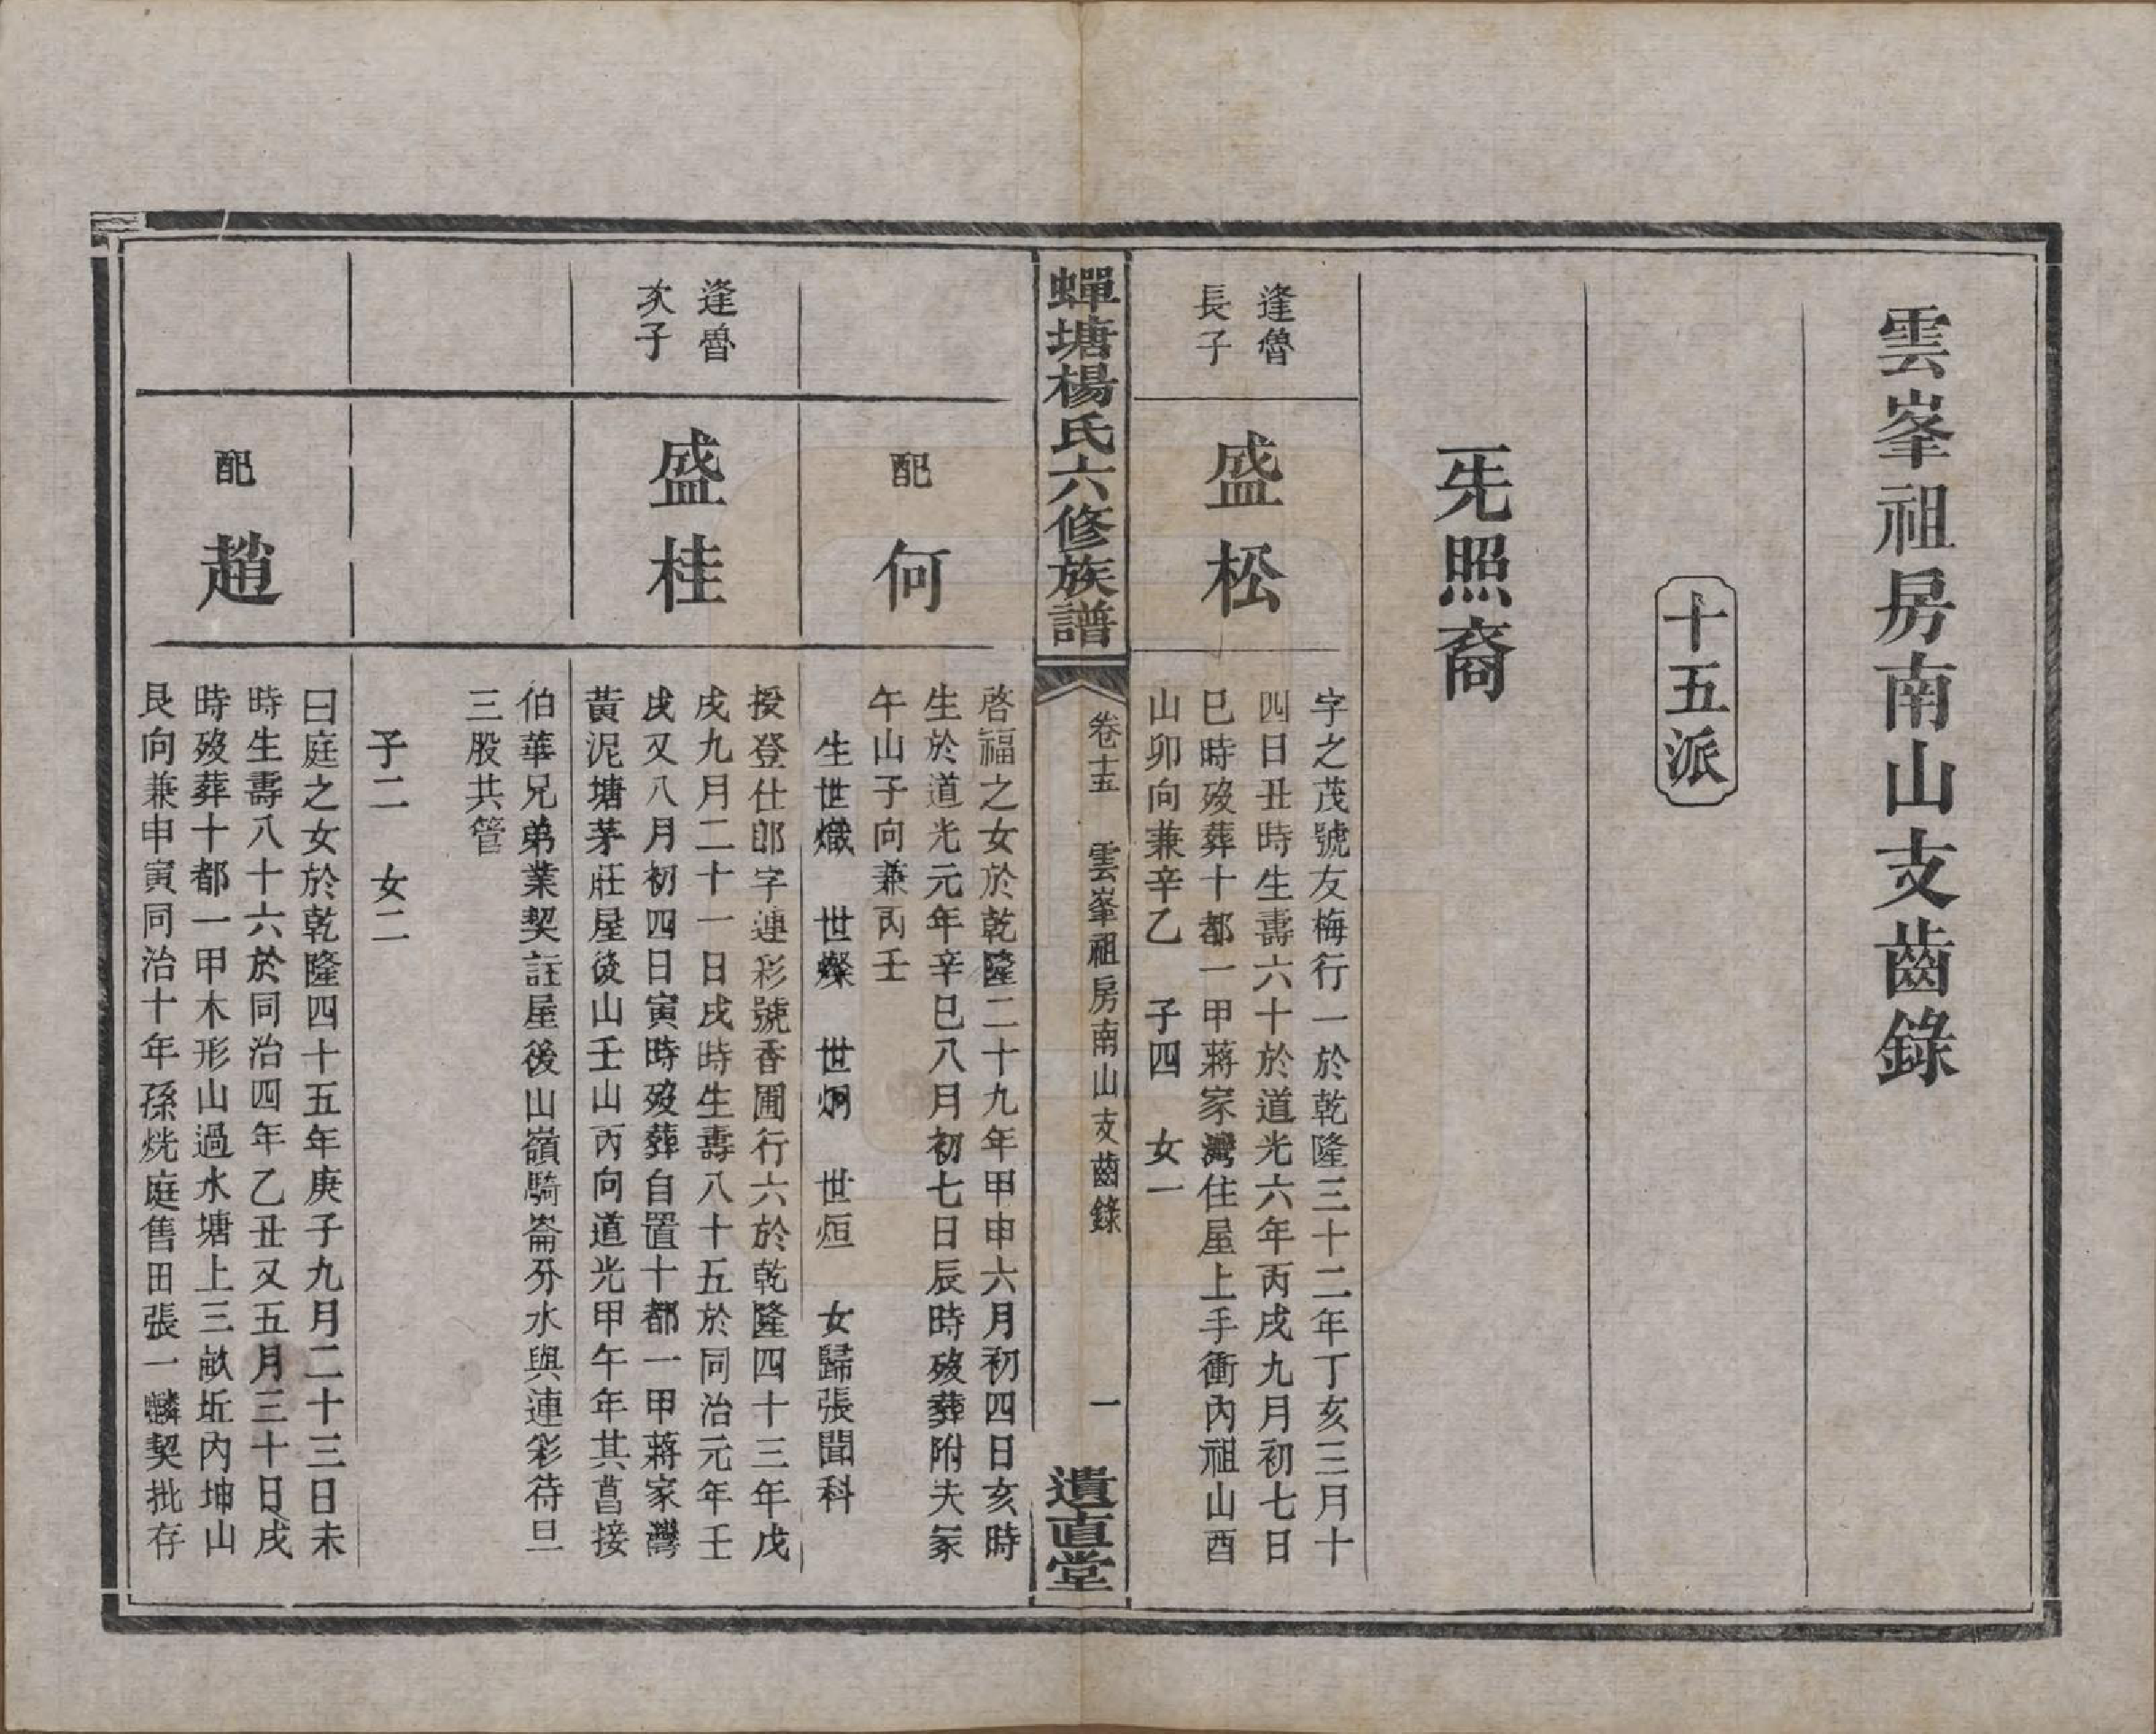 雲峯祖房南山支齒錄
十五派
兂照裔
逢魯
長子
盛松
字之茂號友梅行一於乾隆三十二年丁亥三月十
四日丑時生壽六十於道光六年丙戌九月初七日
巳時歿葬十都一甲蔣家灣住屋上手衝內祖山酉
山卯向兼辛乙　子四　女一
蟬塘楊氏六修族譜
卷十五　雲峯祖房南山支齒錄
一
遺直堂
配何
啓福之女於乾隆二十九年甲申六月初四日亥時
生於道光元年辛巳八月初七日辰時歿葬附夫冢
午山子向兼丙壬
生世熾　世燦　世炯　世烜　女歸張聞科
逢魯
次子
盛桂
授登仕郎字連彩號香圃行六於乾隆四十三年戊
戌九月二十一日戌時生壽八十五於同治元年壬
戌又八月初四日寅時歿葬自置十都一甲蔣家灣
黃泥塘茅莊屋後山壬山丙向道光甲午年其菖接
伯華兄弟業契註屋後山嶺騎崙分水與連彩待旦
三股共管
子二　女二
配趙
曰庭之女於乾隆四十五年庚子九月二十三日未
時生壽八十六於同治四年乙丑又五月三十日戌
時歿葬十都一甲木形山過水塘上三畝坵內坤山
艮向兼申寅同治十年孫烍庭售田張一麟契批存